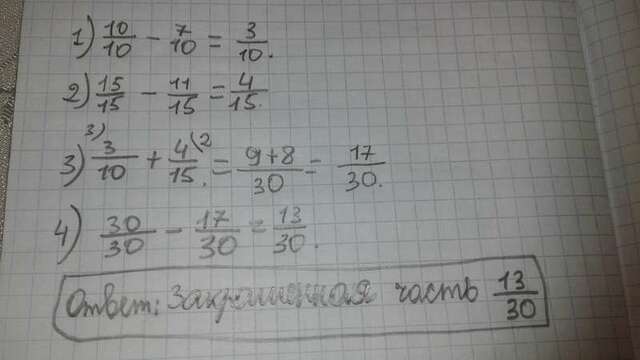 1) 10/10 - 7/10 = 3/10.
2) 15/15 - 11/15 = 4/15.
3) 3) 3/10 + 4(2/15. = 9+8/30 = 17/30.
4) 30/30 - 17/30 = 13/30.
Ответ: Закрашенная часть 13/30